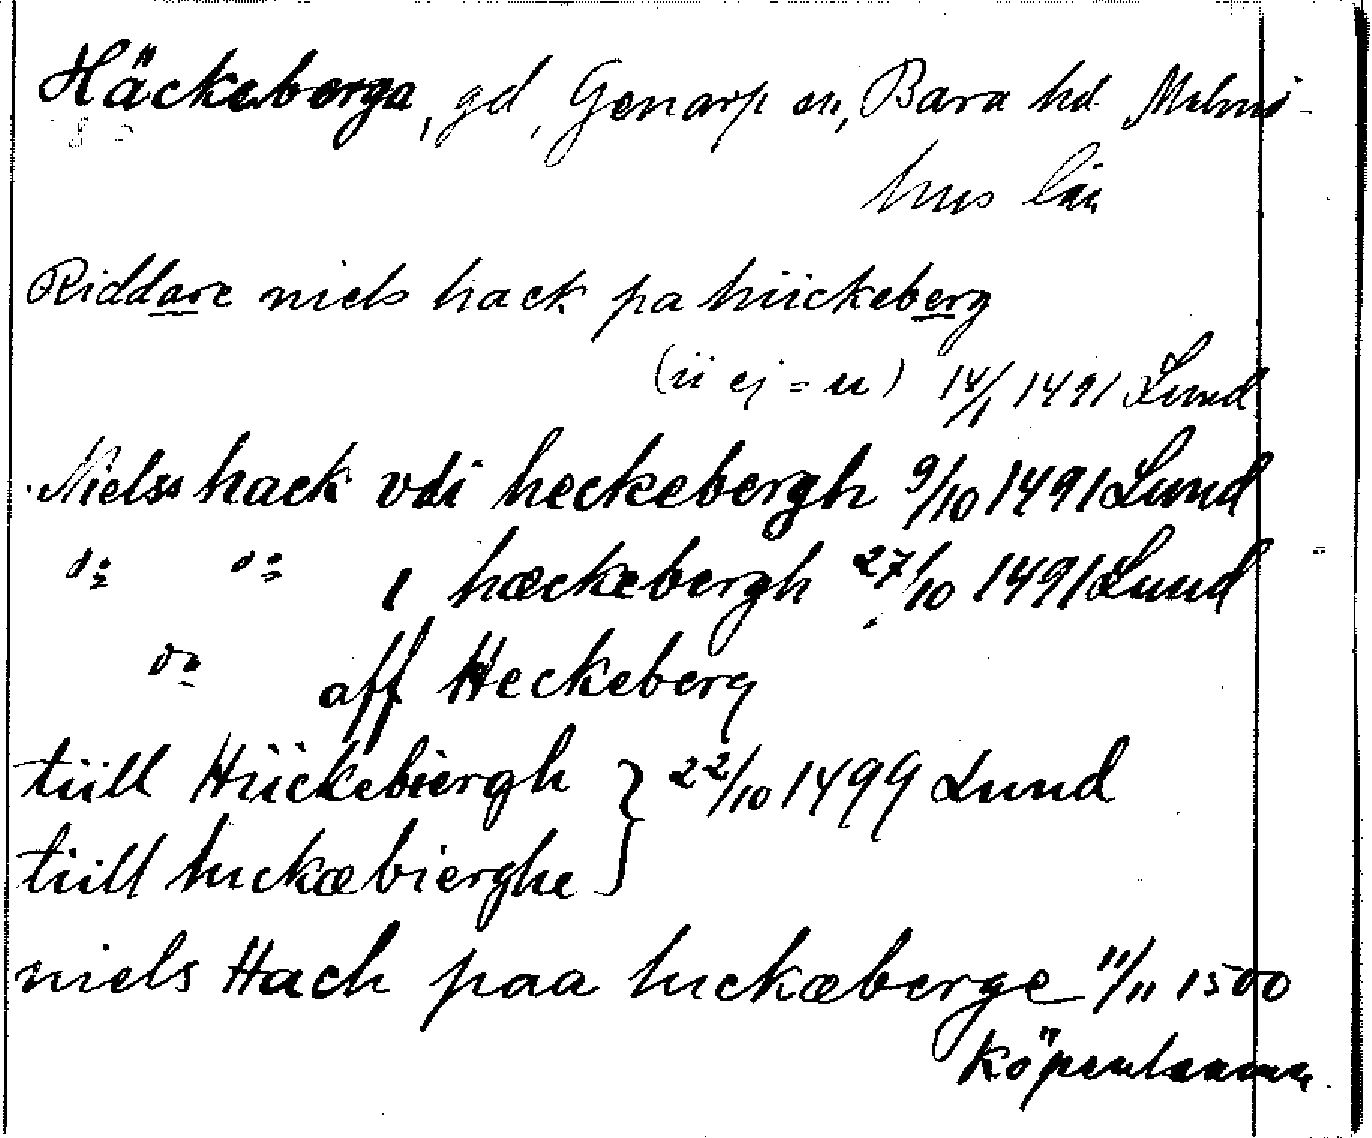 Häckeberga, gd, Genarp sn, Bara hd Malmö-
hus län
Riddare niels hack pa hückeberg
(ü ej = u) 14/1 1491 Lund
Nielss hack vdi heckebergh 9/10 1491 Lund
do do I hæckebergh 27/10 1491 Lund
do aff Heckeberg
tiill Hückebiergh } 22/10 1499 Lund
tiill huckæbierghe
niels Hach paa huckæberge 11/11 1500
Köpenhamn.